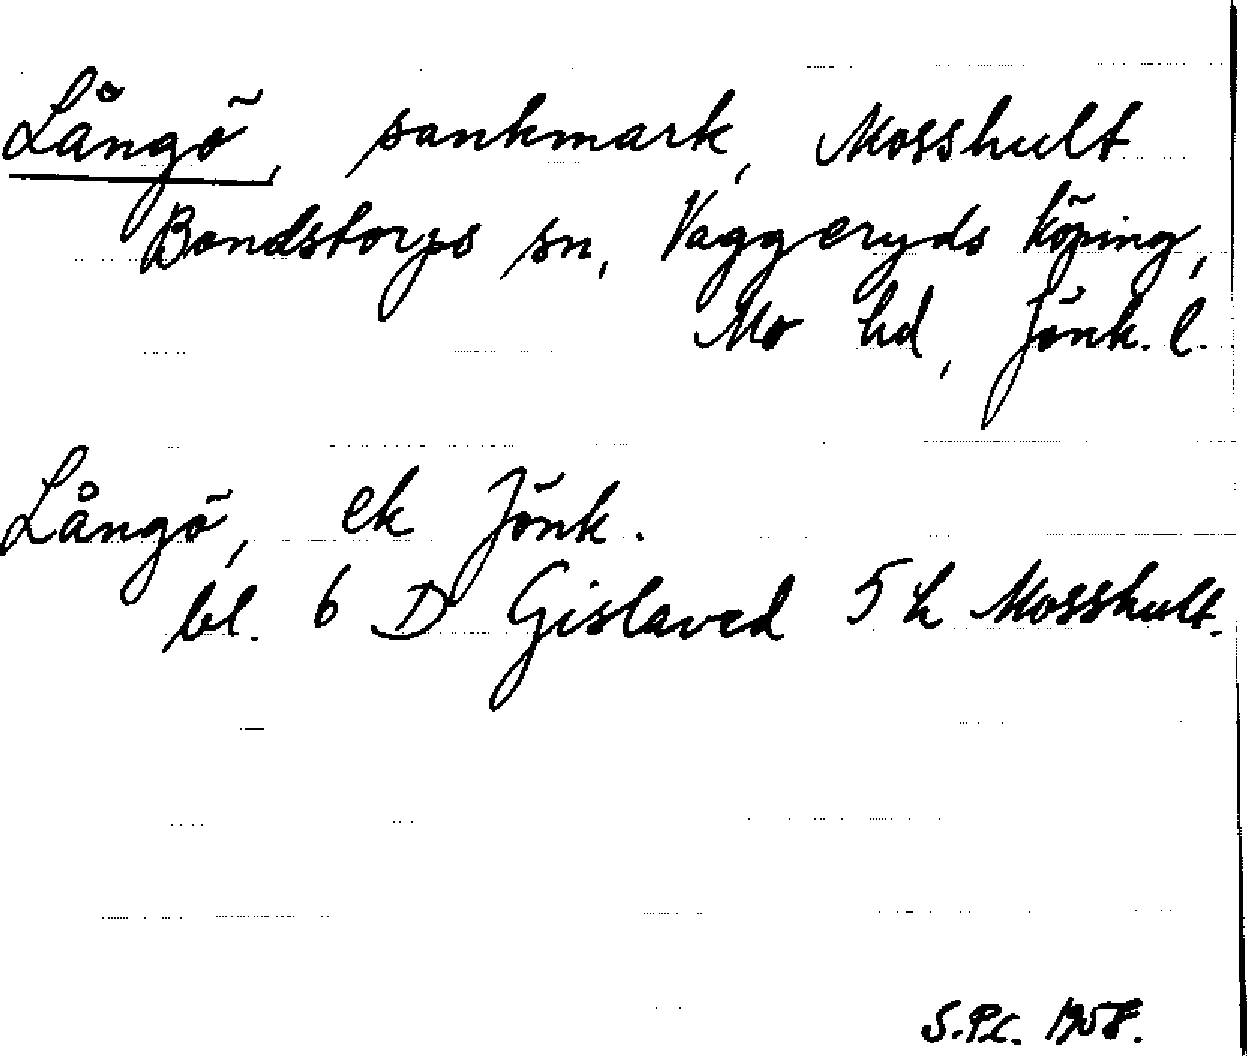 Långö, sankmark, Mosshult
Bondstorps sn, Vaggeryds köping,
Mo hd, Jönk. l.
Långö, ek Jönk.
bl. 6 D Gislaved 5 h Mosshult.
S.PL. 1958.